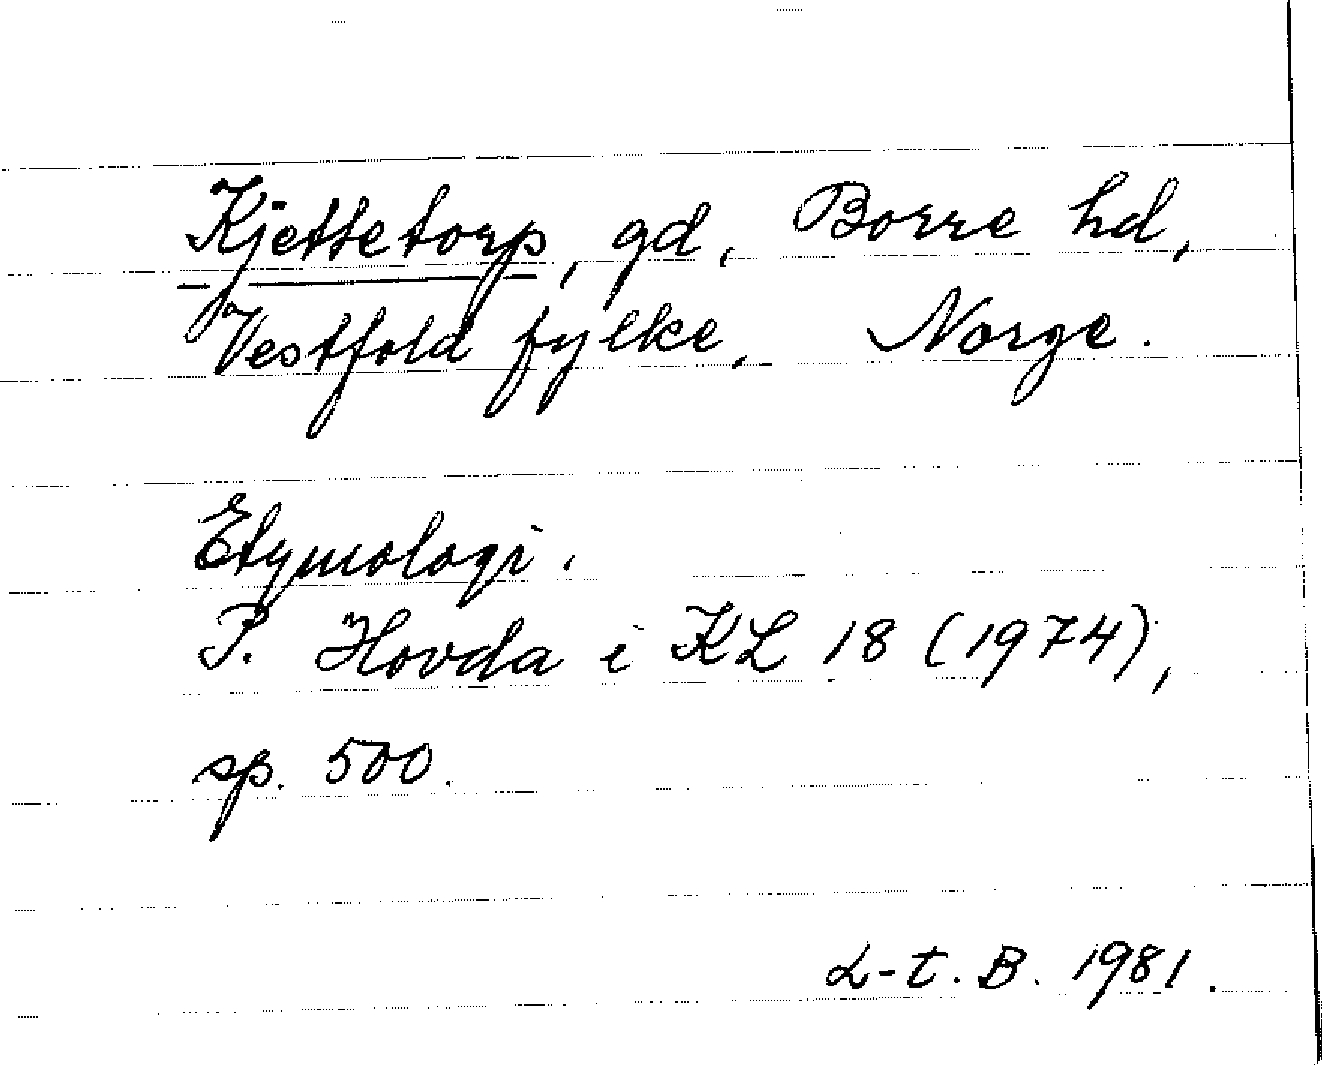 Kjettetorp, gd, Borre hd,
Vestfold fylke, Norge.
Etymologi.
P. Hovda i KL 18 (1974),
sp. 500.
L-t. B. 1981.